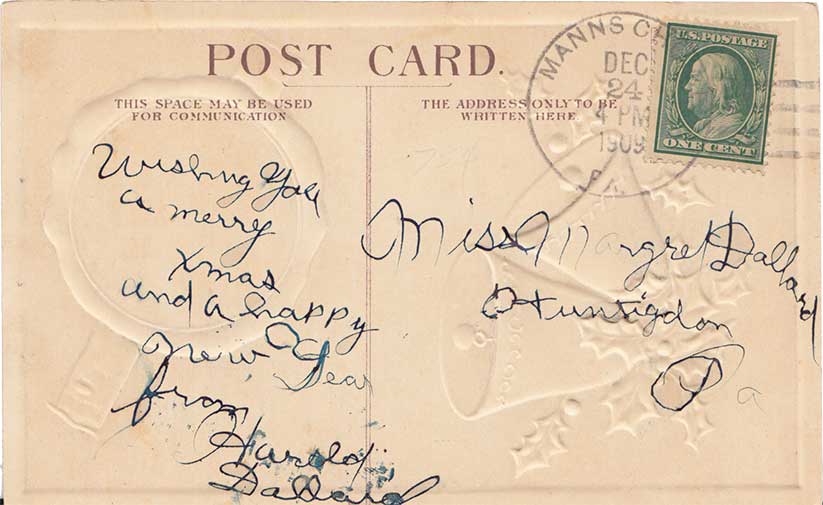 POST CARD.
THIS SPACE MAY BE USED
FOR COMMUNICATION
THE ADDRESS ONLY TO BE
WRITTEN HERE.
MANNS C
DEC
24
4 PM
1909
PA.
U.S. POSTAGE
ONE CENT
Wishing You
a merry
xmas
and a happy
New Year
from
Harold
Dallard
Miss Margret Dallard
Huntigdon
Pa